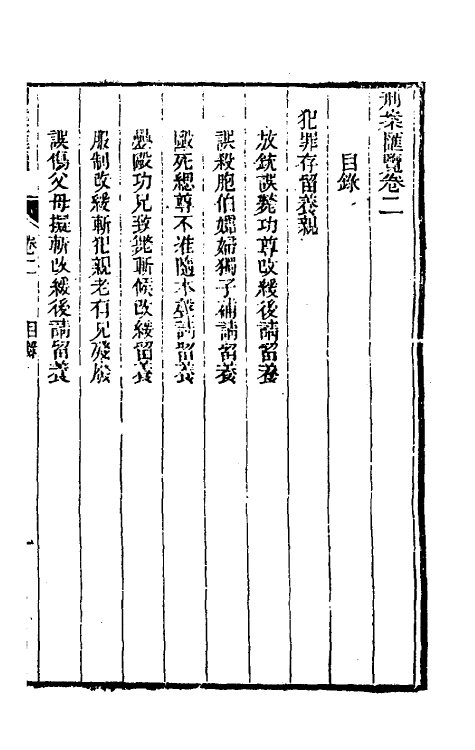 刑案匯覽卷二
目錄
犯罪存留養親
放銃誤斃功尊改緩後請留養
誤殺胞伯孀婦獨子補請留養
毆死緦尊不准隨本聲請留養
毆功兄致斃斬候改緩留養
服制改緩斬犯親老有兄殘廢
誤傷父母擬斬改緩後請留養
卷二
目錄